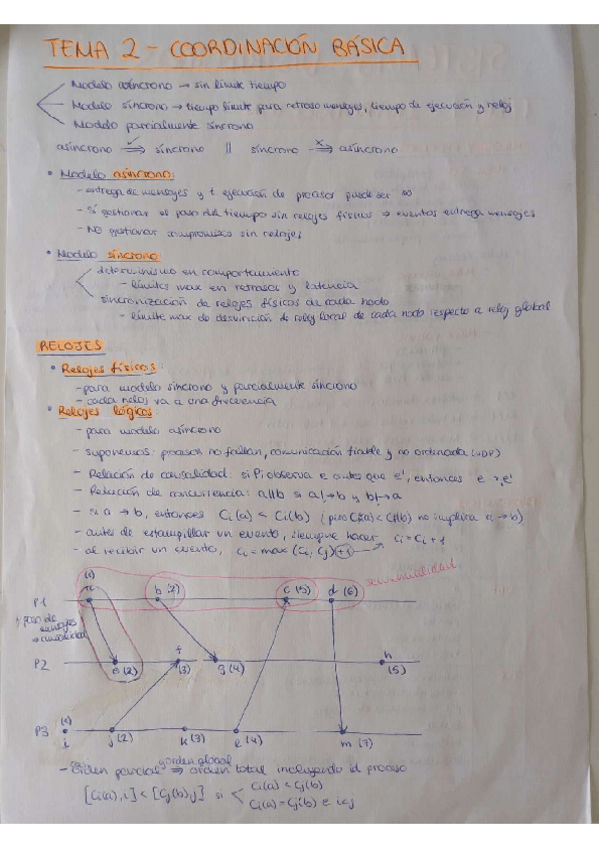 TEMA 2 - COORDINACIÓN BÁSICA
Modelo asíncrono → sin límite tiempo
Modelo síncrono → tiempo límite para retraso mensajes, tiempo de ejecución y reloj
Modelo parcialmente síncrono
asíncrono ⇒ síncrono || síncrono ⇒ asíncrono
• Modelo asíncrono:
- entrega de mensajes y t ejecución de procesos puede ser ∞
- gestionar el paso del tiempo sin relojes físicos ⇒ eventos entrega mensajes
- NO gestionar compromisos sin relojes
• Modelo síncrono:
determinismo en comportamiento
- límites max en retrasos y latencia
sincronización de relojes físicos de cada nodo
- límite max de desviación de reloj local de cada nodo respecto a reloj global
RELOJES
• Relojes físicos:
- para modelo síncrono y parcialmente síncrono
- cada reloj va a una frecuencia
• Relojes lógicos:
- para modelo asíncrono
- suponemos: procesos no fallan, comunicación fiable y no ordenada (UDP)
- Relación de causalidad: si Pi observa e antes que e', entonces e → e'
- Relación de concurrencia: a||b si a!→b y b!→a
- si a → b, entonces Ci(a) < Cj(b) (pero Ci(a) < Cj(b) no implica a → b)
- antes de estampillar un evento, siempre hacer Ci = Ci + 1
- al recibir un evento, Ci = max(Ci, Cj) + 1
secuencialidad
(1)
P1 b(2) c(5) d(6)
paso de mensajes
→ causalidad
f h
P2 e(2) (3) g(4) (5)
(1)
P3 i j(2) k(3) l(4) m(7)
y orden global
- Orden parcial ⇒ orden total incluyendo id proceso
[Ci(a), i] < [Cj(b), j] si Ci(a) < Cj(b)
Ci(a) = Cj(b) e i<j